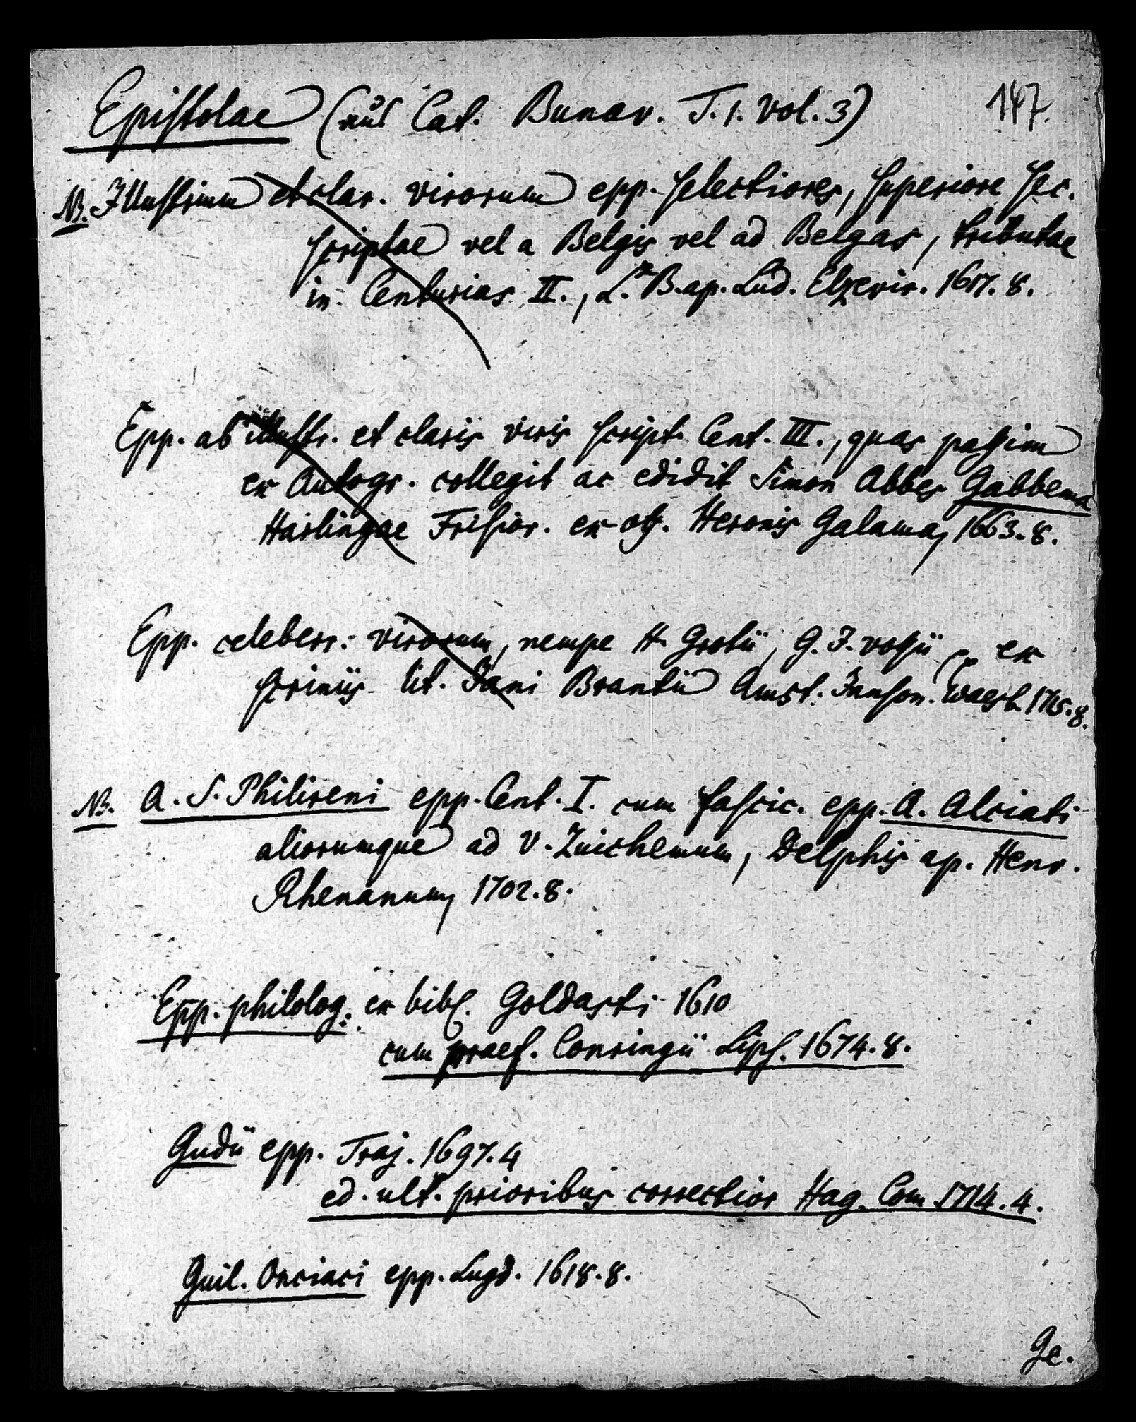 Epistolae (aus Cat. Bunav. T. 1. vol. 3) 147.
NB. Illustrium et clar. virorum epp. selectiores, superiore sec.
scriptae vel a Belgis vel ad Belgas, tributae
in Centurias II., L. B. ap. Lud. Elzevir. 1617. 8.
Epp. ab illustr. et claris viris script. Cent. III., quas passim
ex Autogr. collegit ac edidit Simon Abbes Gabbema
Harlingae Frisior. ex off. Heronis Galama, 1663. 8.
Epp. celeberr. virorum, nempe H. Grotii, G. J. Vossii ex
scriniis lit. Jani Brantii Amst. Janson. Waesb. 1715. 8.
NB. A. S. Philireni epp. Cent. I. cum fascic. epp. A. Alciati
aliorumque ad V. Zuichemum, Delphis ap. Henr.
Rhenanum, 1702. 8.
Epp. philolog. ex bibl. Goldasti 1610
cum praef. Conringii Lips. 1674. 8.
Gudii epp. Traj. 1697. 4
ed. ult. prioribus correctior Hag. Com. 1714. 4.
Guil. Onciaci epp. Lugd. 1618. 8.
Ge.